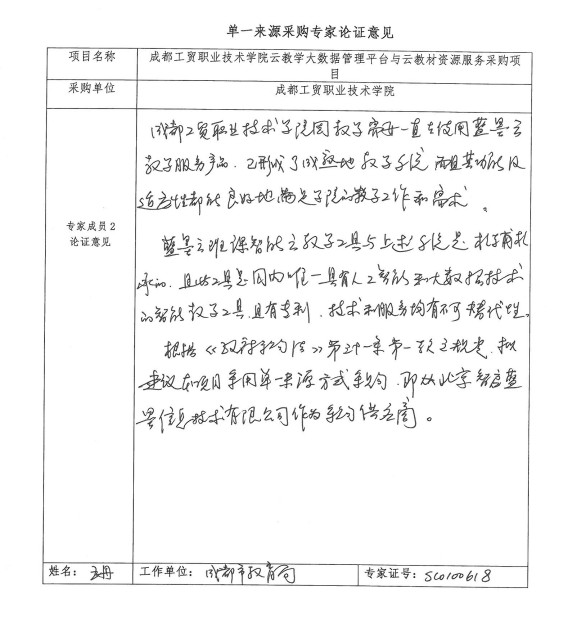 单一来源采购专家论证意见
项目名称
成都工贸职业技术学院云教学大数据管理平台与云教材资源服务采购项
目
采购单位
成都工贸职业技术学院
专家成员2
论证意见
成都工贸职业技术学院因教学需要一直在使用蓝墨云
教学服务产品，已形成了成熟地教学系统 而且其功能及
适应性都能良好地满足学院的教学工作和需求。
蓝墨云班课智能云教学工具与上述系统是
承的，且此工具是国内唯一具有人工智能和大数据技术
的智能教学工具，且有专利，技术和服务均有不可替代性。
根据《政府采购法》第三十一条第一款之规定，拟
建议本项目采用单一来源方式采购，即从北京智启蓝
墨信息技术有限公司作为采购供应商。
姓名：
工作单位：成都市教育局
专家证号：SC0100618